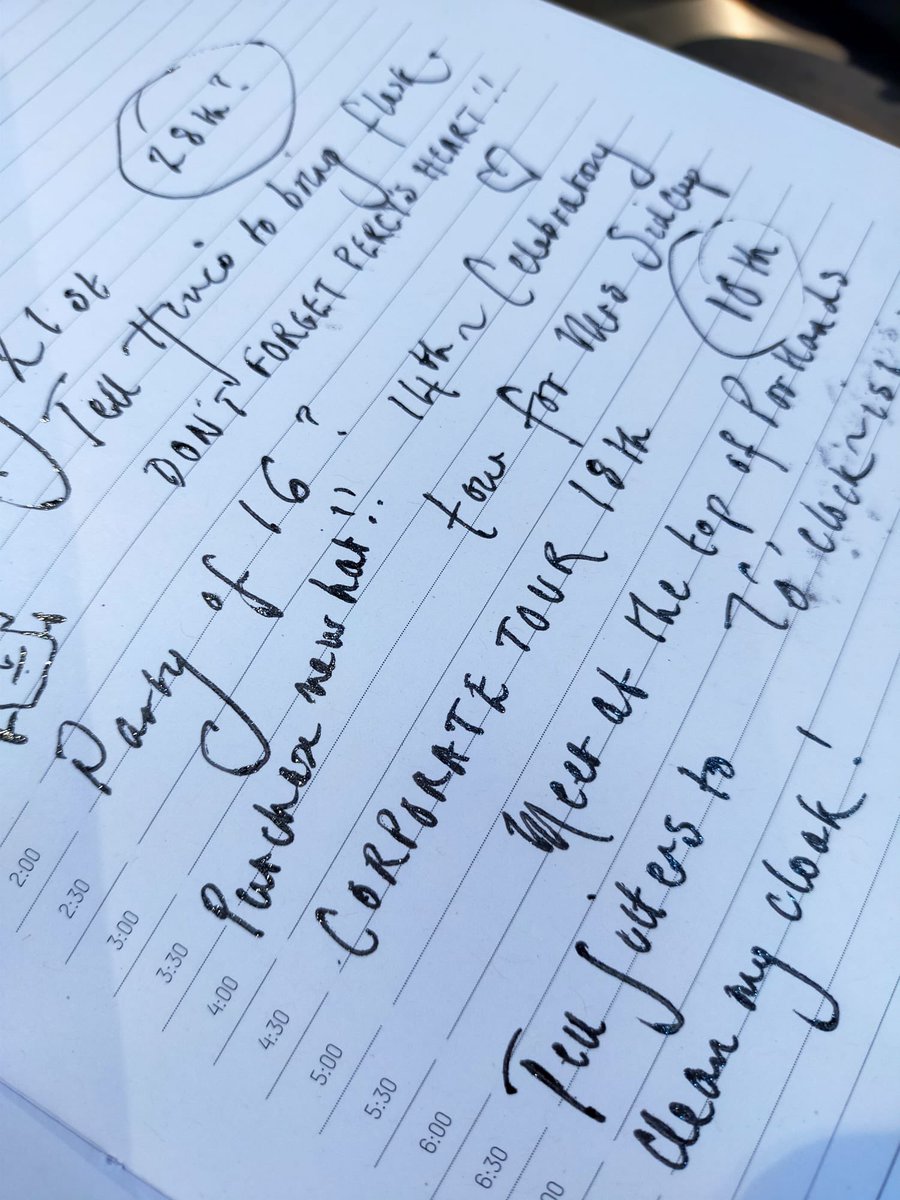 28th?
21st
Tell to bring flask.
DON'T FORGET PERCY'S HEART!!
Party of 16?
14th ~ Celebratory
tour for Mrs Sidcup
Purchase new hat!!
18th
CORPORATE TOUR 18th
Meet at the top of Portlands
7 O'clock ~
Tell to
clean my cloak!
2:00
2:30
3:00
3:30
4:00
4:30
5:00
5:30
6:00
6:30
00